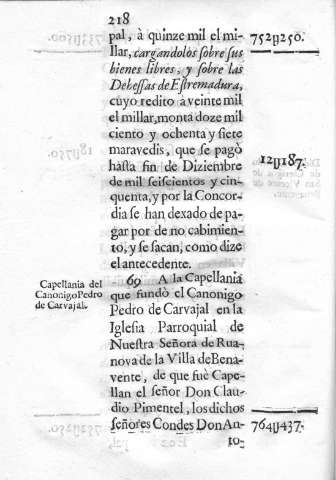 218
pal, à quinze mil el mi-
llar, cargandolos sobre sus
bienes libres, y sobre las
Dehessas de Estremadura,
cuyo redito à veinte mil
el millar, monta doze mil
ciento y ochenta y siete
maravedis, que se pagò
hasta fin de Diziembre
de mil seiscientos y cin-
quenta, y por la Concor-
dia se han dexado de pa-
gar por de no cabimien-
to, y se sacan, como dize
el antecedente.
69 A la Capellania
que fundò el Canonigo
Pedro de Carvajal en la
Iglesia Parroquial de
Nuestra Señora de Rua-
nova de la Villa de Bena-
vente, de que fuè Cape-
llan el señor Don Clau-
dio Pimentel, los dichos
señores Condes Don An-
to-
752y250.
12y187.
764y437.
Capellania del
Canonigo Pedro
de Carvajal.